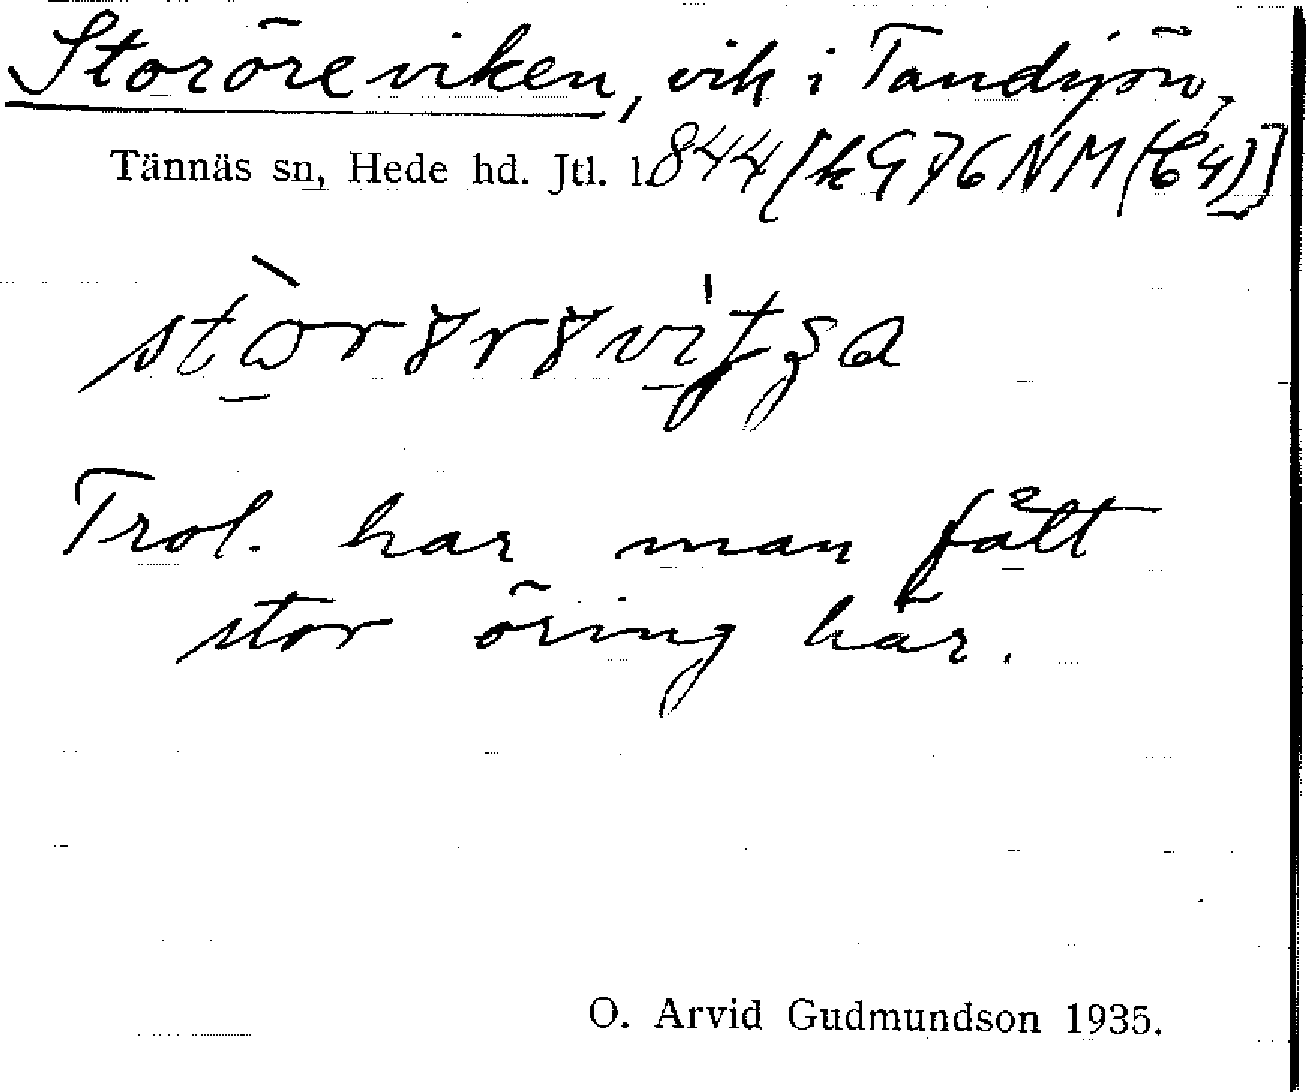 Storöreviken, vik i Tandsjön,
Tännäs sn, Hede hd. Jtl. l. 844 [k976NM(64)]
Trol. har man fått
stor öring här.
O. Arvid Gudmundson 1935.